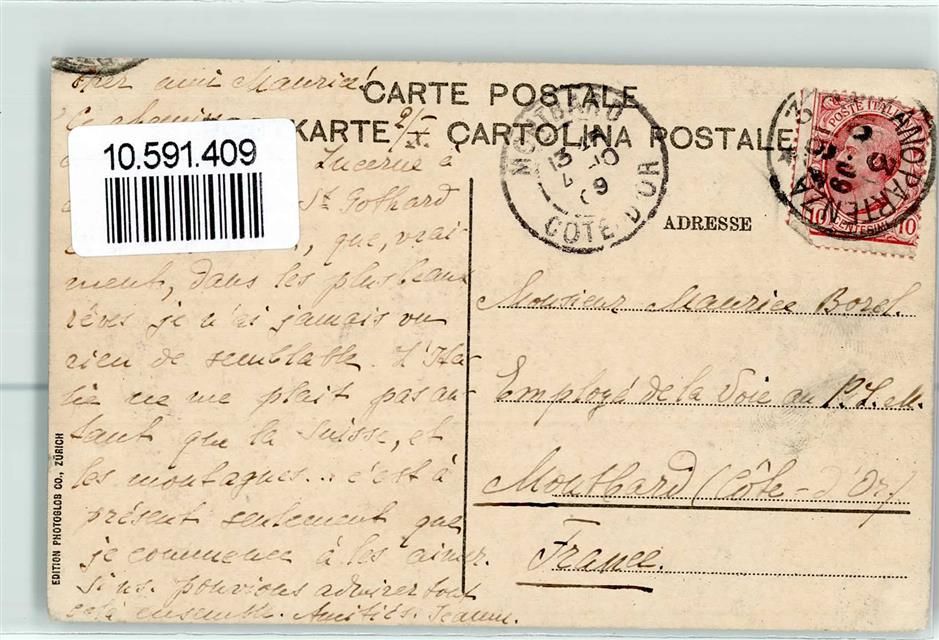 Cher ami Maurice!
CARTE POSTALE
KARTE 9/X CARTOLINA POSTALE
10.591.409
Lucerne à
St Gothard
que, vrai-
ment, dans les plus beaux
rêves je n'ai jamais vu
rien de semblable. L'Ita-
lie ne me plait pas au-
tant que la Suisse, et
les montagnes... c'est à
présent seulement que
je commence à les aimer.
Si ns. pouvions admirer tout
cela ensemble. Amitiés.
EDITION PHOTOGLOB CO., ZÜRICH
MONTBARD
13
4 -10
09
COTE D'OR
POSTE ITALIANE
10 CENTESIMI 10
PARTENZA
ADRESSE
Monsieur Maurice Borel.
Employé de la Voie au P.L.M.
Montbard (Côte-d'Or)
France.